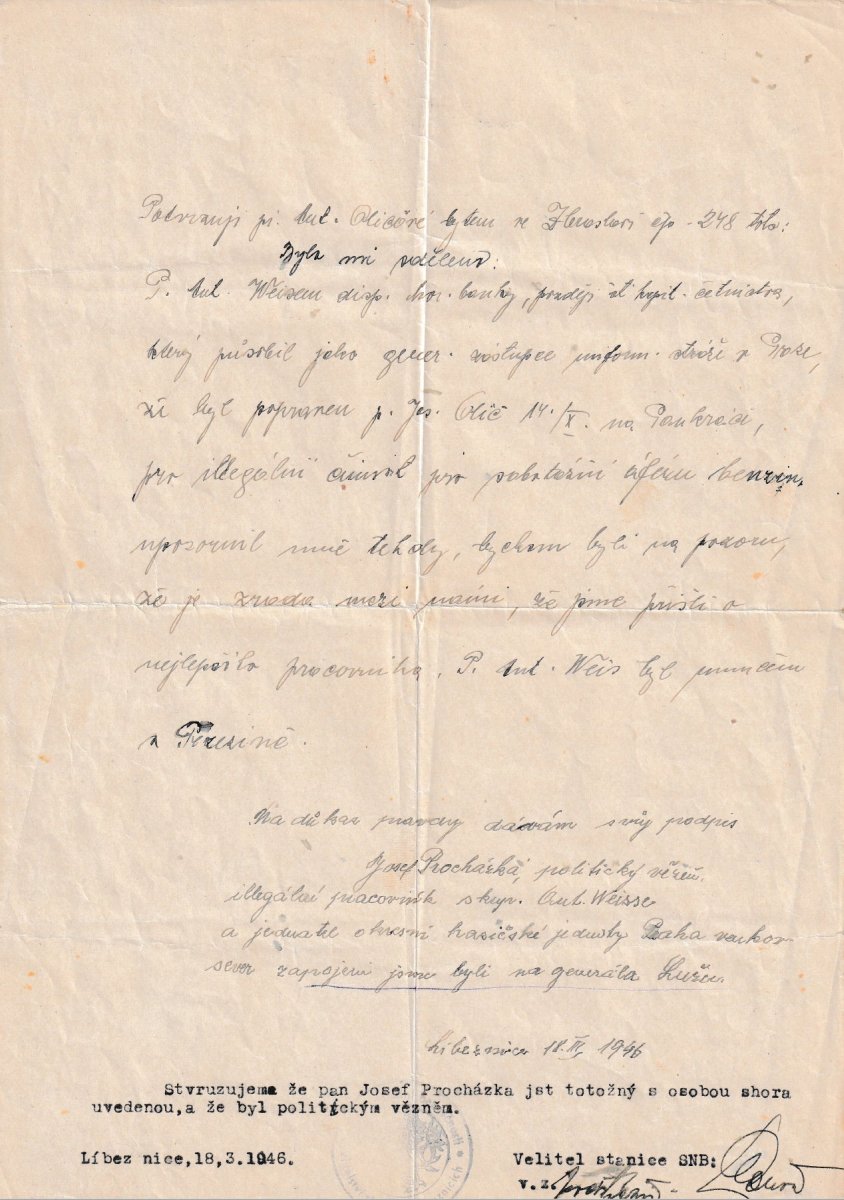 Potvrzuji pí. Ant. Oličové bytem ve Zbraslavi čp. 248 toto:
Bylo mi sděleno:
P. Ant. Weisem disp. banky, později št. kapit. četnictva,
který působil jako gener. zástupce uniform. stráže v Praze,
že byl popraven p. Jos. Olič 14./X. na Pankráci,
pro illegální činnost pro sabotážní aféru benzin.
upozornil mně tehdy, bychom byli na pozoru,
že je zrada mezi námi, že jsme přišli o
nejlepšího pracovníka. P. Ant. Weis byl umučen
v Terezíně.
Na důkaz pravdy dávám svůj podpis
Josef Procházka, politický vězeň.
illegální pracovník skup. Ant. Weisse
a jednatel okresní hasičské jednoty Praha venkov
sever zapojeni jsme byli na generála Lužu.
Líbeznice 18. III. 1946
Stvruzujeme že pan Josef Procházka jst totožný s osobou shora
uvedenou,a že byl politickým vězněm.
Líbez nice,18,3.1946.
Velitel stanice SNB:
v.z.